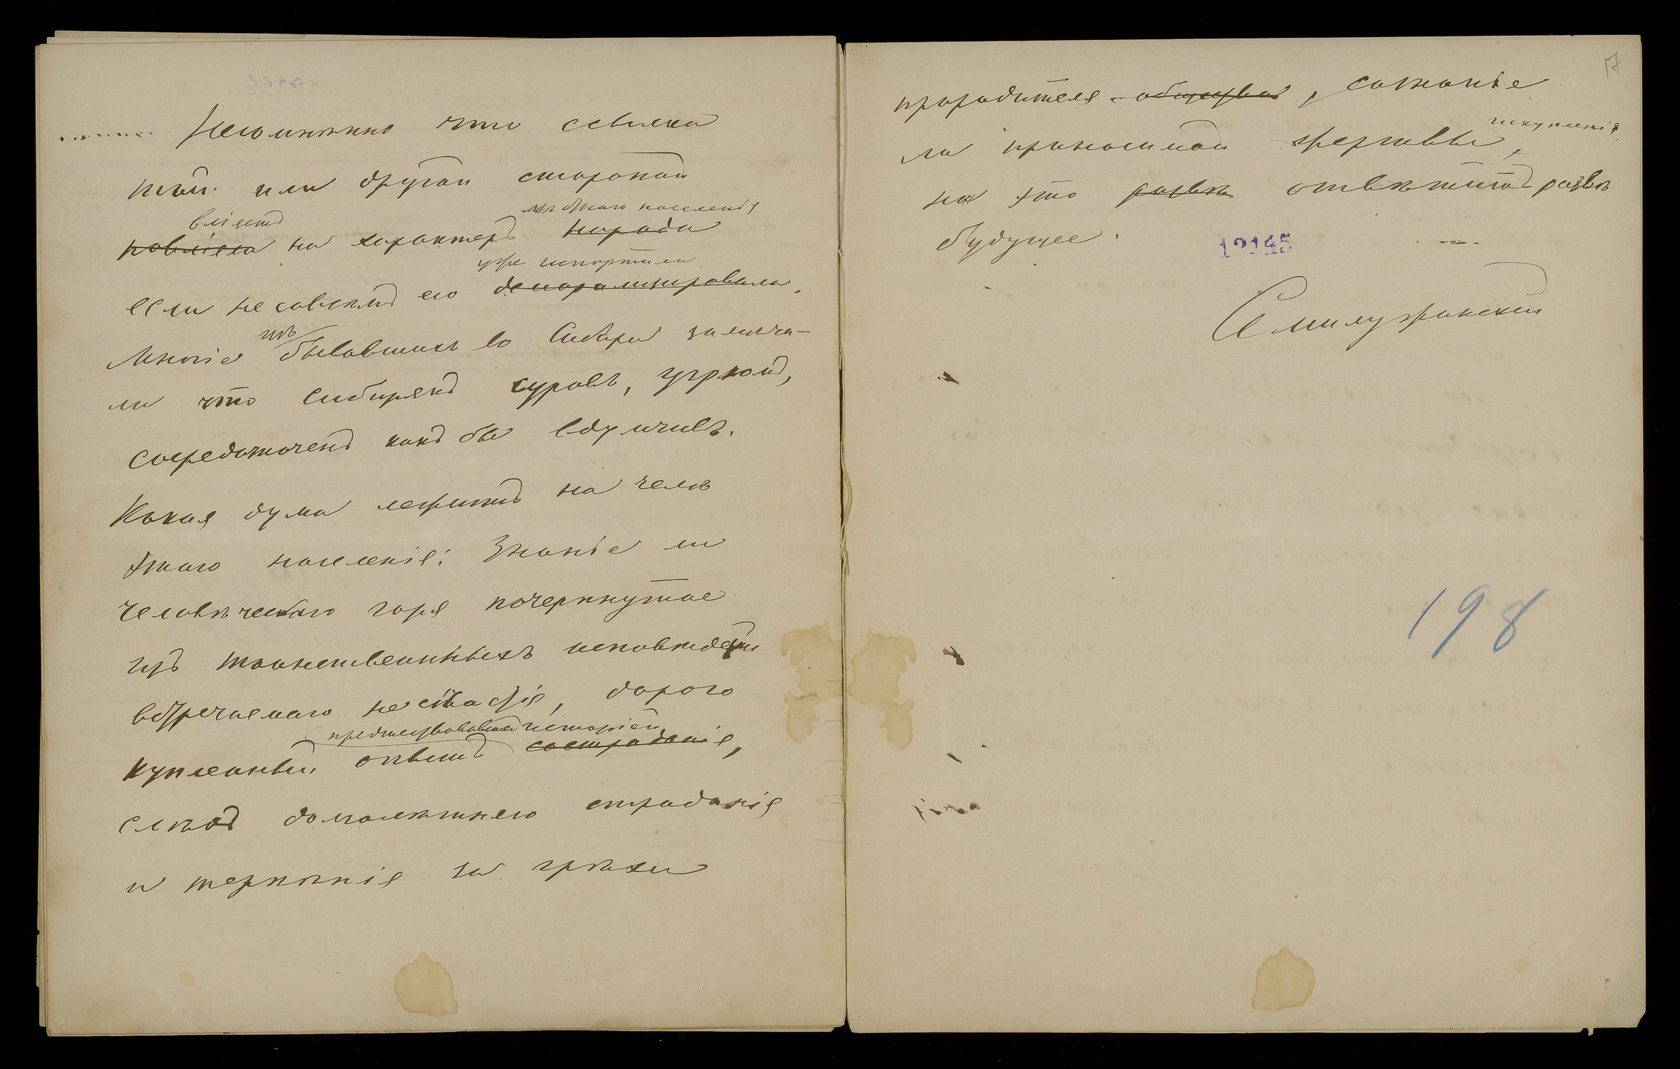 Несомнѣнно что ссылка
той или другой стороной
вліяетъ мѣстнаго населенія
повліяла на характеръ народа
уже испортила
если не совсѣмъ его деморализировала.
Многіе изъ бывавшихъ въ Сибири замѣча-
ли что сибирякъ суровъ, угрюмъ,
сосредоточенъ какъ бы вдумчивъ.
Какая дума лежитъ на челѣ
этаго населенія: Знаніе ли
человѣческаго горя почерпнутое
изъ таинственныхъ исповѣдей
встрѣчаемаго несчастія, дорого
предшествовавшей исторіей
купленный опытъ состраданія,
слѣдъ долголѣтняго страданія
и терпѣнія за грѣхи
17
прародителя общества, сознаніе
искупленія
ли приносимой жертвы,
на это развѣ отвѣтитъ развѣ
будущее.
12145
Семилужинскій
198